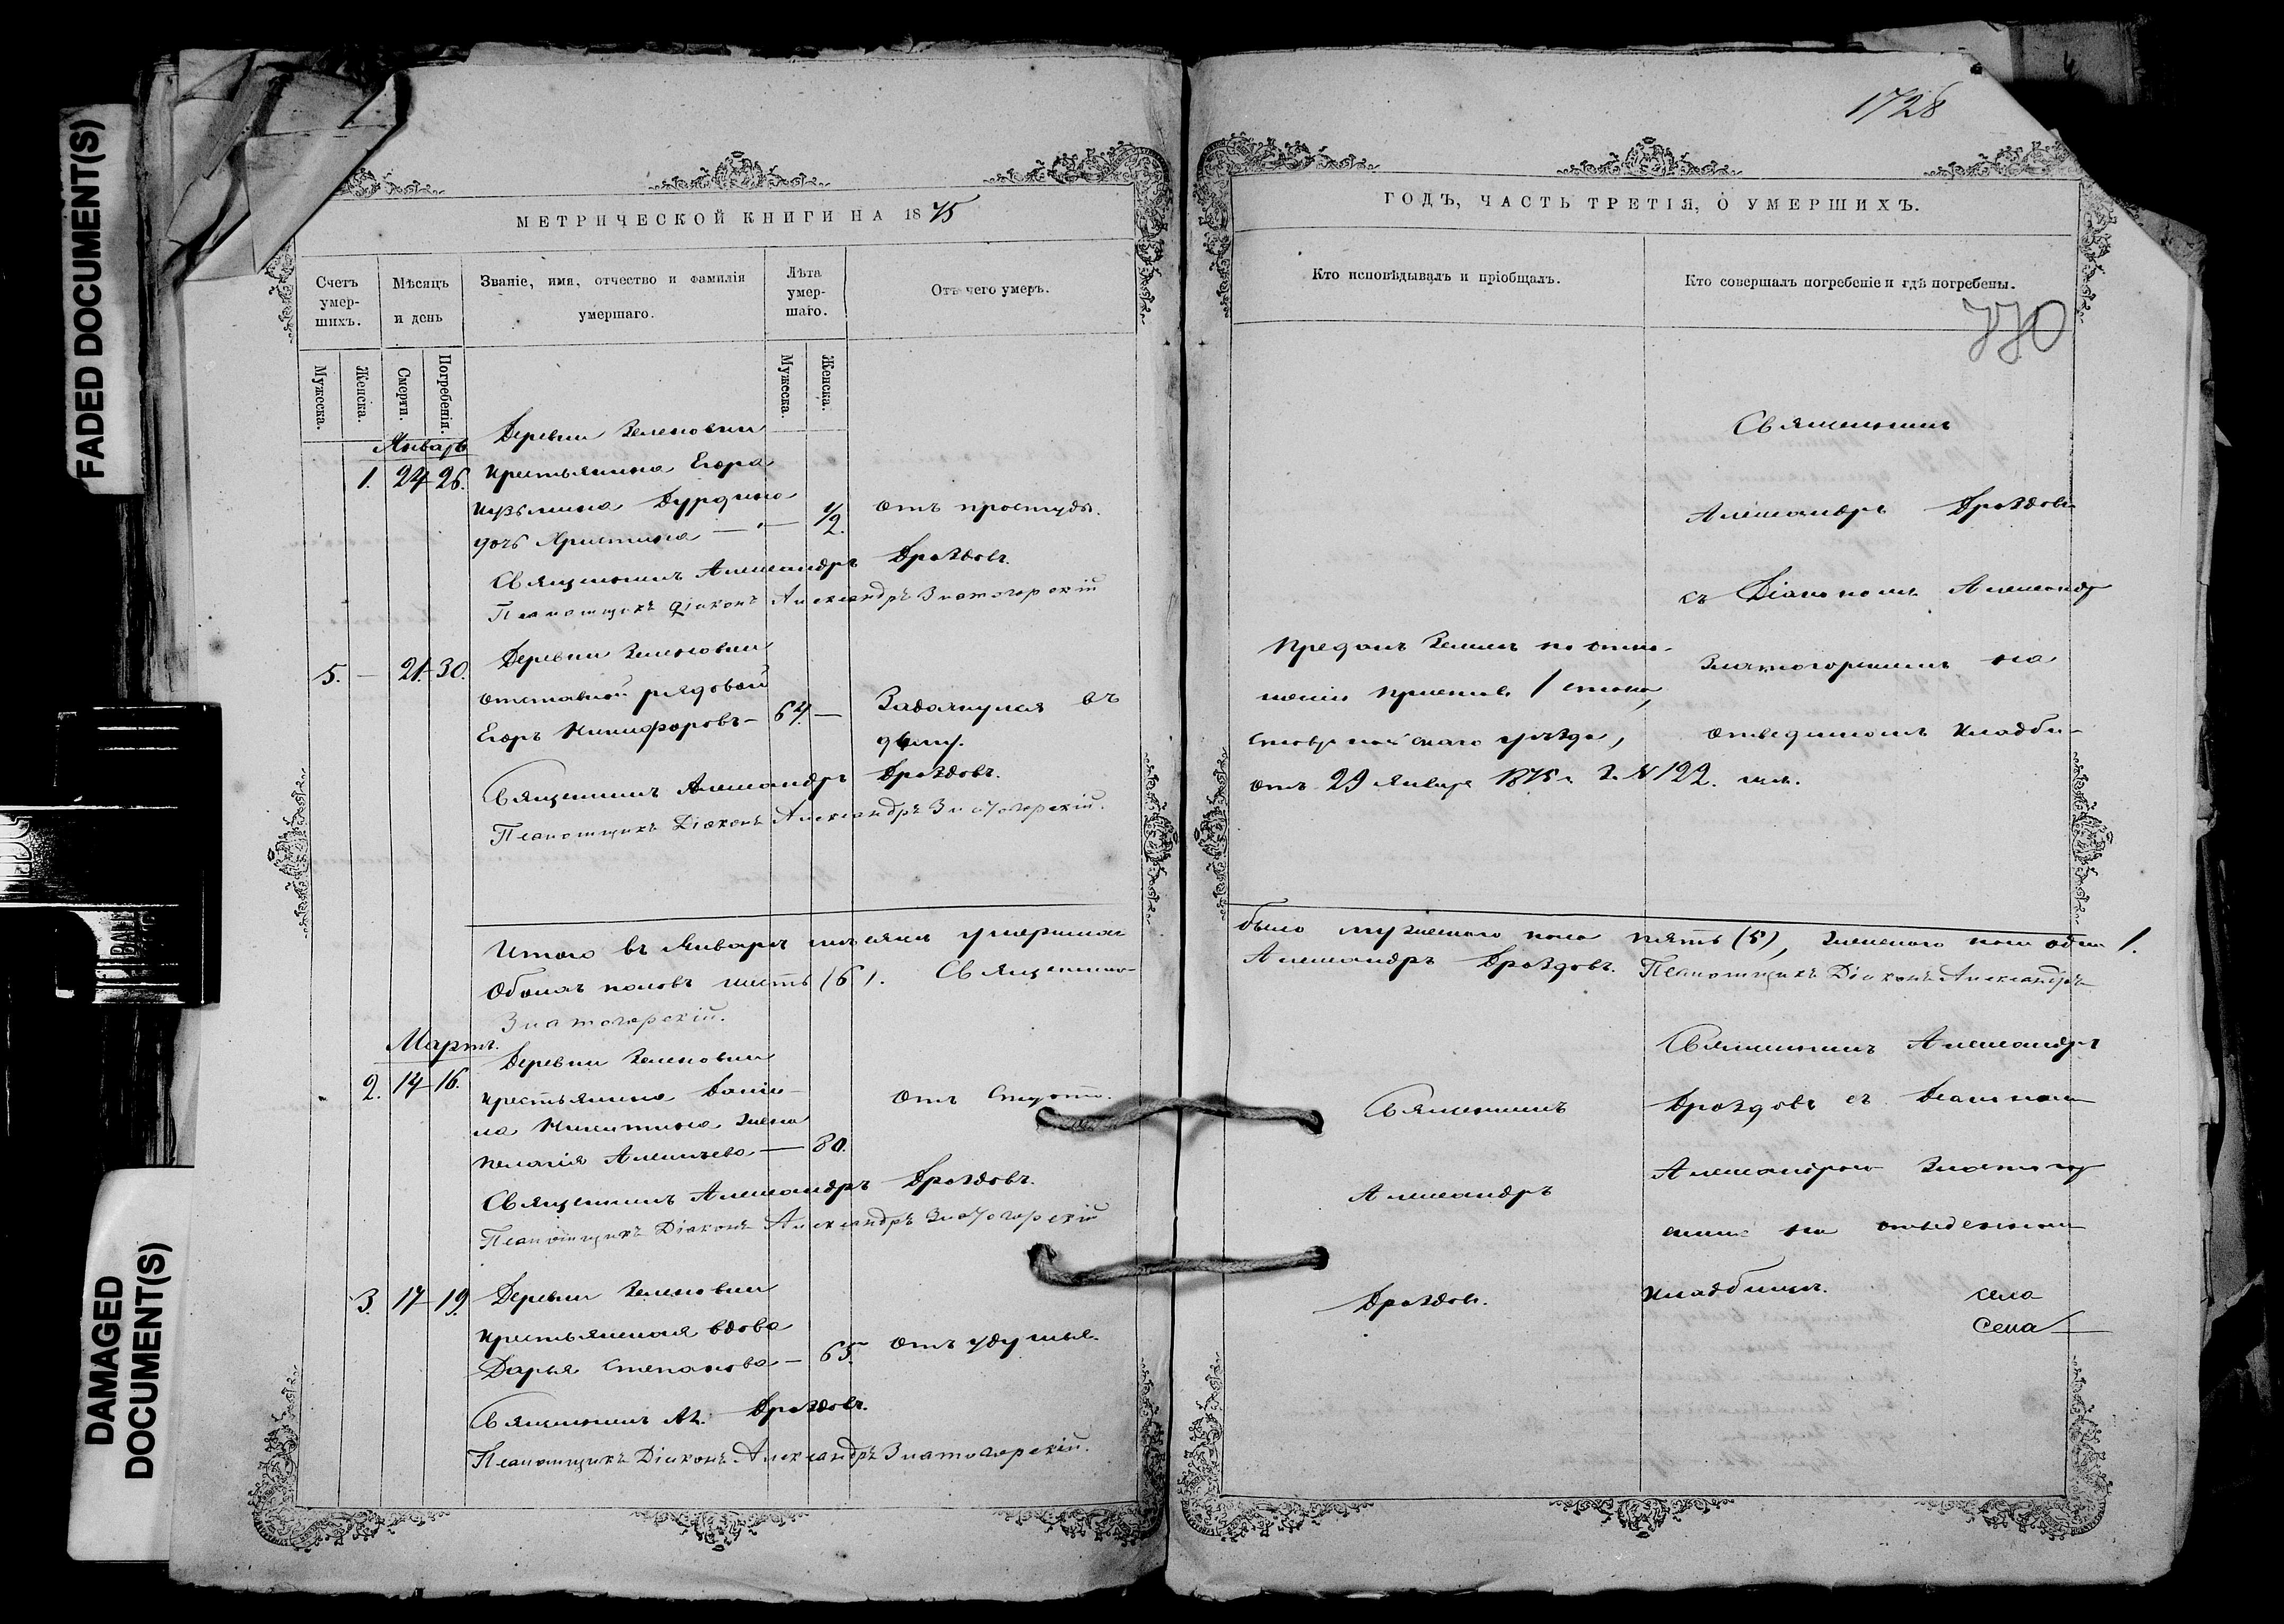 FADED DOCUMENT(S)
DAMAGED
DOCUMENT(S)
МЕТРИЧЕСКОЙ КНИГИ НА 1875
Счетъ умер-шихъ.
Мѣсяцъ и день
Званіе, имя, отчество и фамилія умершаго.
Лѣта умер-шаго.
Отъ чего умеръ.
Мужеска.
Женска.
Смерти.
Погребенія.
Мужеска.
Женска.
Январь
Деревни Зеленовки
1. 24 26. крестьянина Егора
Кузьмина Дурдина
дочь Христина — 1/2. Отъ простуды.
Священникъ Александръ Дроздовъ.
Псаломщикъ діаконъ Александръ Златогорскій
5. — 21. 30. Деревни Зеленовки
отставной рядовой
Егоръ Никифоровъ — 64. — Задохнулся въ
дыму.
Священникъ Александръ Дроздовъ.
Псаломщикъ Діаконъ Александръ Златогорскій.
Итого въ Январѣ мѣсяцѣ умершихъ
Обоихъ половъ шесть (6). Священникъ
Златогорскій.
Мартъ.
Деревни Зеленовки
2. 14 16. крестьянина Дани-
ла Никитина жена
Пелагія Алексѣева — 80.
Отъ
Священникъ Александръ Дроздовъ.
Псаломщикъ Діаконъ Александръ Златогорскій
3. 17 19. Деревни Зеленовки
крестьянская вдова
Дарья Степанова — 65. Отъ удушья.
Священникъ Ал. Дроздовъ.
Псаломщикъ Діаконъ Александръ Златогорскій.
1728
ГОДЪ, ЧАСТЬ ТРЕТІЯ, О УМЕРШИХЪ.
Кто исповѣдывалъ и пріобщалъ.
Кто совершалъ погребеніе и гдѣ погребены.
770
Священникъ
Александръ Дроздовъ
съ Діакономъ Александр
Златогорскимъ на
отведенномъ кладби-
щѣ.
Преданъ землѣ по отно-
шенію Пристава 1 стана,
Ставропольскаго уѣзда,
отъ 29 Января 1875 г. № 122.
было мужескаго пола пять (5), женскаго пола одна 1.
Александръ Дроздовъ. Псаломщикъ Діаконъ Александръ
Священникъ
Александръ
Дроздовъ.
Священникъ Александръ
Дроздовъ съ Діакономъ
Александромъ Златогор
скимъ на отведенномъ
кладбищѣ. села